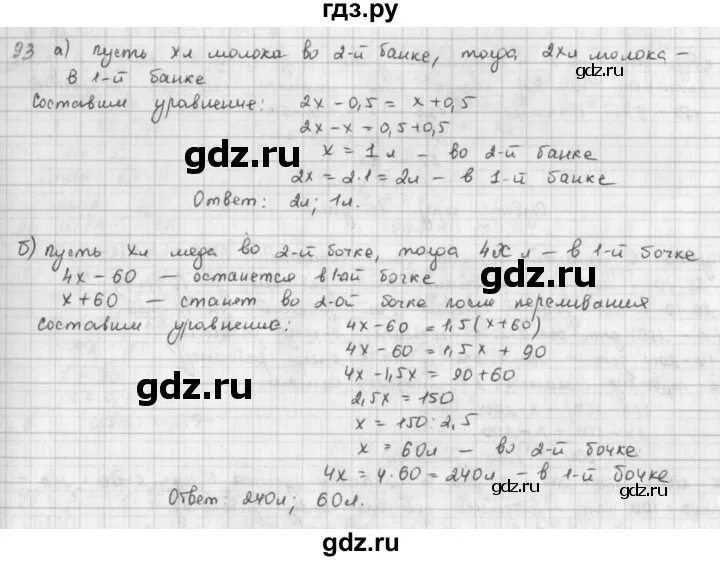 гдз.ру
93 а) пусть хл молока во 2-й банке, тогда 2хл молока -
в 1-й банке
Составим уравнение: 2х - 0,5 = х + 0,5
2х - х = 0,5 + 0,5
gdz.ru
gdz.ru
х = 1 л - во 2-й банке
2х = 2·1 = 2л - в 1-й банке
Ответ: 2л; 1л.
б) пусть хл меда во 2-й бочке, тогда 4х л - в 1-й бочке
gdz.ru
4х - 60 - останется в 1ай бочке
х + 60 - станет во 2-ой бочке после переливания
Составим уравнение: 4х - 60 = 1,5(х + 60)
4х - 60 = 1,5х + 90
4х - 1,5х = 90 + 60
gdz.ru
2,5х = 150
х = 150 : 2,5
х = 60л - во 2-й бочке
4х = 4·60 = 240л - в 1-й бочке
gdz.ru
Ответ: 240л; 60л.
gdz.ru